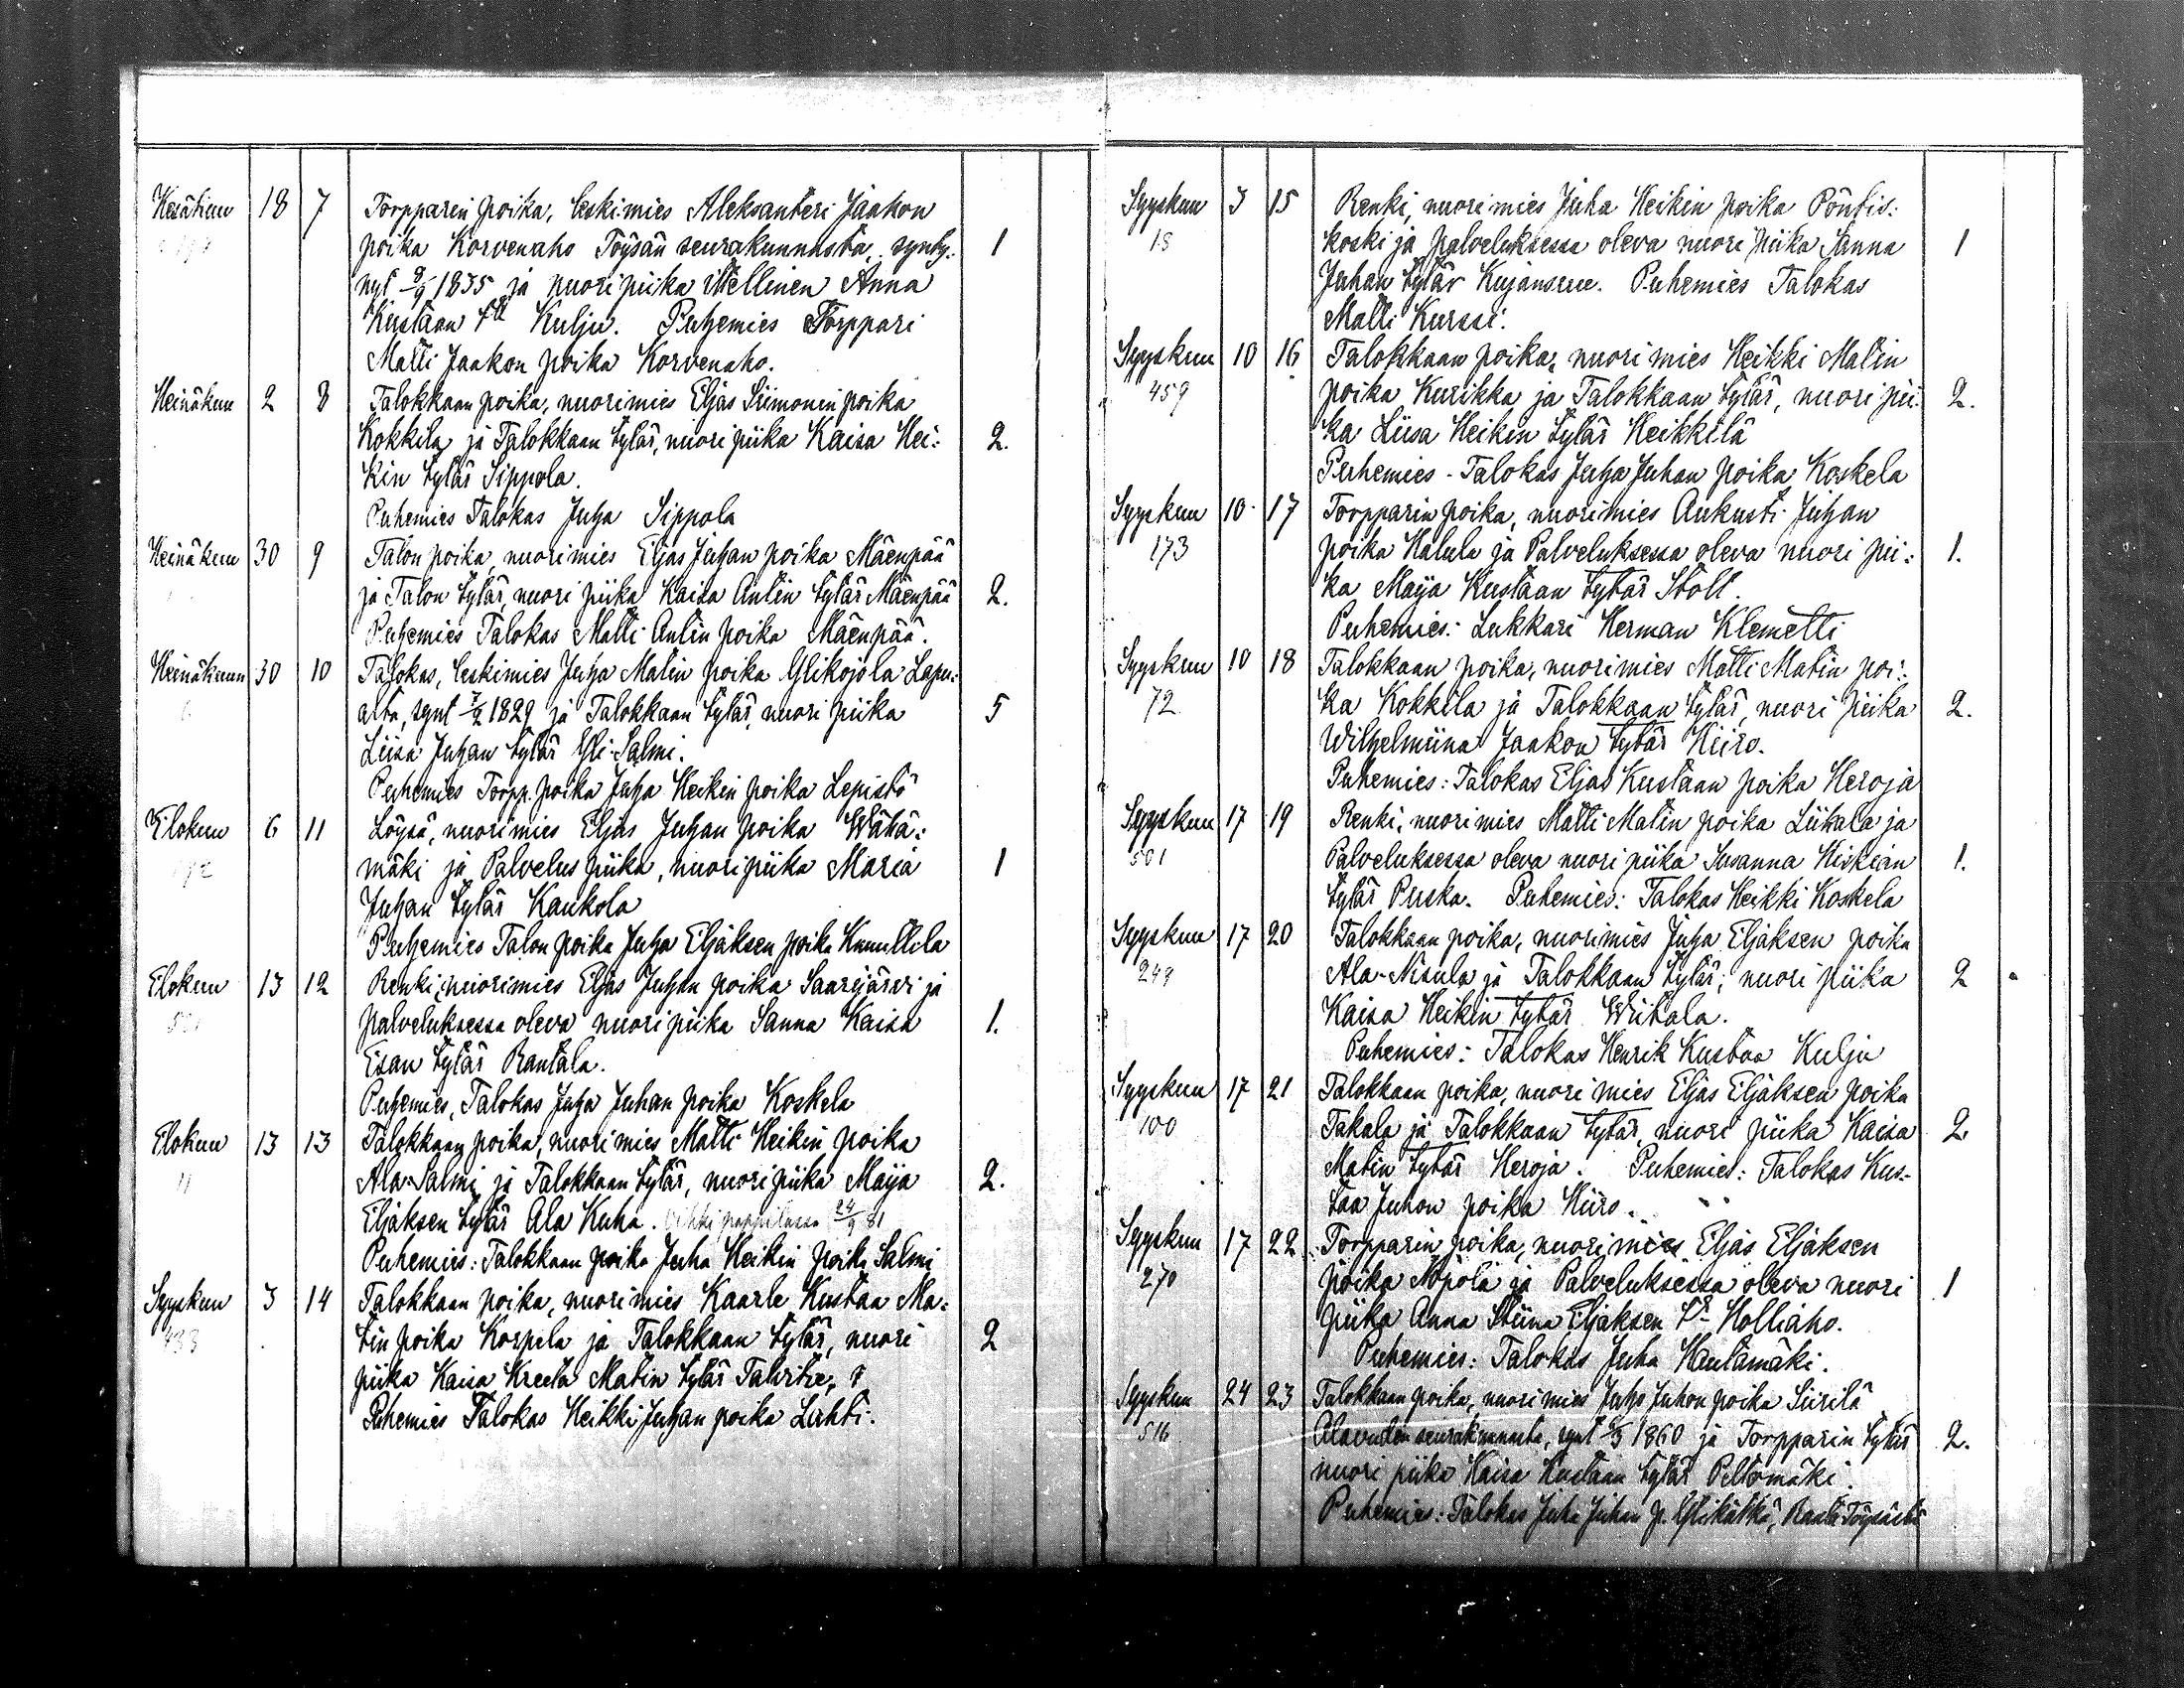 Kesäkuu 18 7 Torpparin poika, leskimies Aleksanteri Jaakon
poika Korvenaho Töysän seurakunnasta, synty: 1
nyt 9/9 1835 ja nuori piika Wellinen Anna
Kustaan Kulju. Puhemies Torppari
Matti Jaakon poika Korvenaho.
Heinäkuu 2 8 Talokkaan poika, nuorimies Eljas Siimonin poika
Kokkila ja Talokkaan tytär, nuori piika Kaisa Hei: 2.
kin tytär Sippola.
Puhemies Talokas Juha Sippola
Heinäkuu 30 9 Talon poika, nuorimies Eljas Juhan poika Mäenpää
ja Talon tytär, nuori piika Kaisa Antin tytär Mäenpää 2.
Puhemies Talokas Matti Antin poika Mäenpää.
Heinäkuun 30 10 Talokas, leskimies Juha Matin poika Ylikojola Lapu:
alta, synt 7/2 1829 ja Talokkaan tytär, nuori piika 5
Liisa Juhan tytär Yli-Salmi.
Puhemies Torpp. poika Juha Heikin poika Lepistö
Elokuu 6 11 Löysä, nuorimies Eljas Juhan poika Wähä:
mäki ja Palvelus piika, nuori piika Maria 1
Juhan tytär Kaukola
Puhemies Talon poika Juha Eljaksen poika Knuuttila
Elokuu 13 12 Renki, nuorimies Eljas Juhan poika Saarijärvi ja
palveluksessa oleva nuori piika Sanna Kaisa 1.
Esan tytär Rantala.
Puhemies, Talokas Juha Juhan poika Koskela
Elokuu 13 13 Talokkaan poika, nuorimies Matti Heikin poika
11 Ala-Salmi ja Talokkaan tytär, nuori piika Maija 2.
Eljaksen tytär Ala Kuha. Vihki pappilassa 24/9 81
Puhemies: Talokkaan poika Juha Heikin poika Salmi
Syyskuu 3 14 Talokkaan poika, nuorimies Kaarle Kustaa Ma:
433 tin poika Korpela ja Talokkaan tytär, nuori 2
piika Kaisa Kreeta Matin tytär
Puhemies Talokas Heikki Juhan poika Lahti.
Syyskuu 3 15 Renki, nuori mies Juha Heikin poika Pöntis:
18 koski ja palveluksessa oleva nuori piika Sanna 1
Juhan tytär Kujansuu. Puhemies Talokas
Matti Kurssi.
Syyskuu 10 16 Talokkaan poika, nuori mies Heikki Matin
459 poika Kurikka ja Talokkaan tytär, nuori pii: 2.
ka Liisa Heikin tytär Heikkilä
Puhemies - Talokas Juha Juhan poika Koskela
Syyskuu 10 17 Torpparin poika, nuorimies Aukusti Juhan
173 poika Halula ja Palveluksessa oleva nuori pii: 1.
ka Maija Kustaan tytär Stolt.
Puhemies: Lukkari Herman Klemetti
Syyskuu 10 18 Talokkaan poika, nuorimies Matti Matin poi:
72 ka Kokkila ja Talokkaan tytär, nuori piika 2.
Wilhelmiina Jaakon tytär Hiiro.
Puhemies: Talokas Eljas Kustaan poika Heroja
Syyskuu 17 19 Renki, nuorimies Matti Matin poika Liikala ja
501 Palveluksessa oleva nuori piika Susanna Hiskian 1.
tytär Puska. Puhemies: Talokas Heikki Koskela
Syyskuu 17 20 Talokkaan poika, nuorimies Juha Eljaksen poika
249 Ala-Nisula ja Talokkaan tytär, nuori piika 2
Kaisa Heikin tytär Wiitala.
Puhemies: Talokas Henrik Kustaa Kulju
Syyskuu 17 21 Talokkaan poika, nuori mies Eljas Eljaksen poika
100 Takala ja Talokkaan tytär, nuori piika Kaisa 2.
Matin tytär Heroja. Puhemies: Talokas Kus:
taa Juhon poika Hiiro.
Syyskuu 17 22 Torpparin poika, nuori mies Eljas Eljaksen
270 poika Nopola ja Palveluksessa oleva nuori 1
piika Anna Stiina Eljaksen Holliaho.
Puhemies: Talokas Juha Hautamäki.
Syyskuu 24 23 Talokkaan poika, nuori mies Juho Juhon poika Siirilä
516 Alavuden seurakunnasta, synt 1860 ja Torpparin tytär 2.
nuori piika Kaisa Kustaan tytär Peltomäki.
Puhemies: Talokas Juha Juhan p. Töysästä